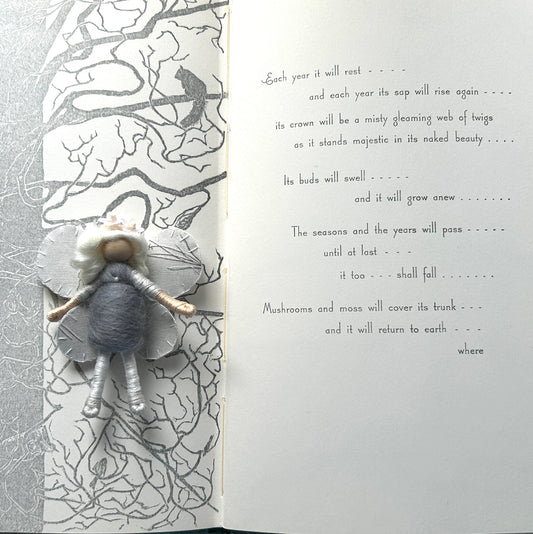 Each year it will rest - - - -
and each year its sap will rise again - - - -
its crown will be a misty gleaming web of twigs
as it stands majestic in its naked beauty . . . .
Its buds will swell - - - - -
and it will grow anew . . . . . . .
The seasons and the years will pass - - - - -
until at last - - -
it too - - - shall fall . . . . . . .
Mushrooms and moss will cover its trunk - - -
and it will return to earth - - -
where